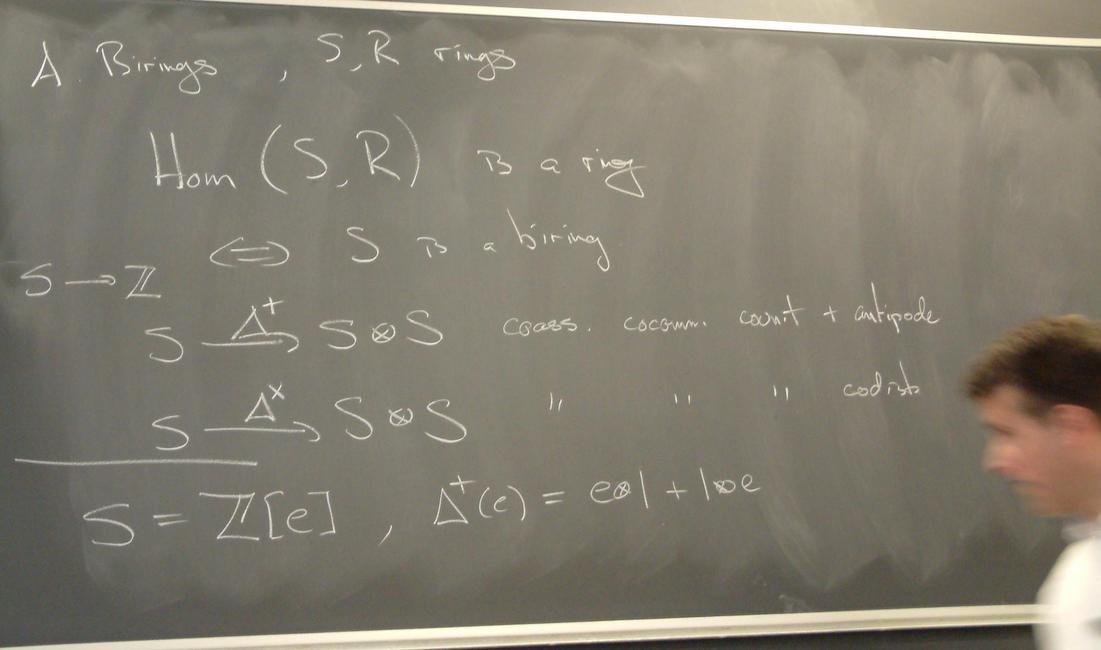 A. Birings, S, R rings
Hom (S, R) is a ring
⟺ S is a biring
S → ℤ
S —Δ⁺→ S ⊗ S coass. cocomm. counit + antipode
S —Δˣ→ S ⊗ S " " " codist
S = ℤ[e], Δ⁺(e) = e⊗1 + 1⊗e